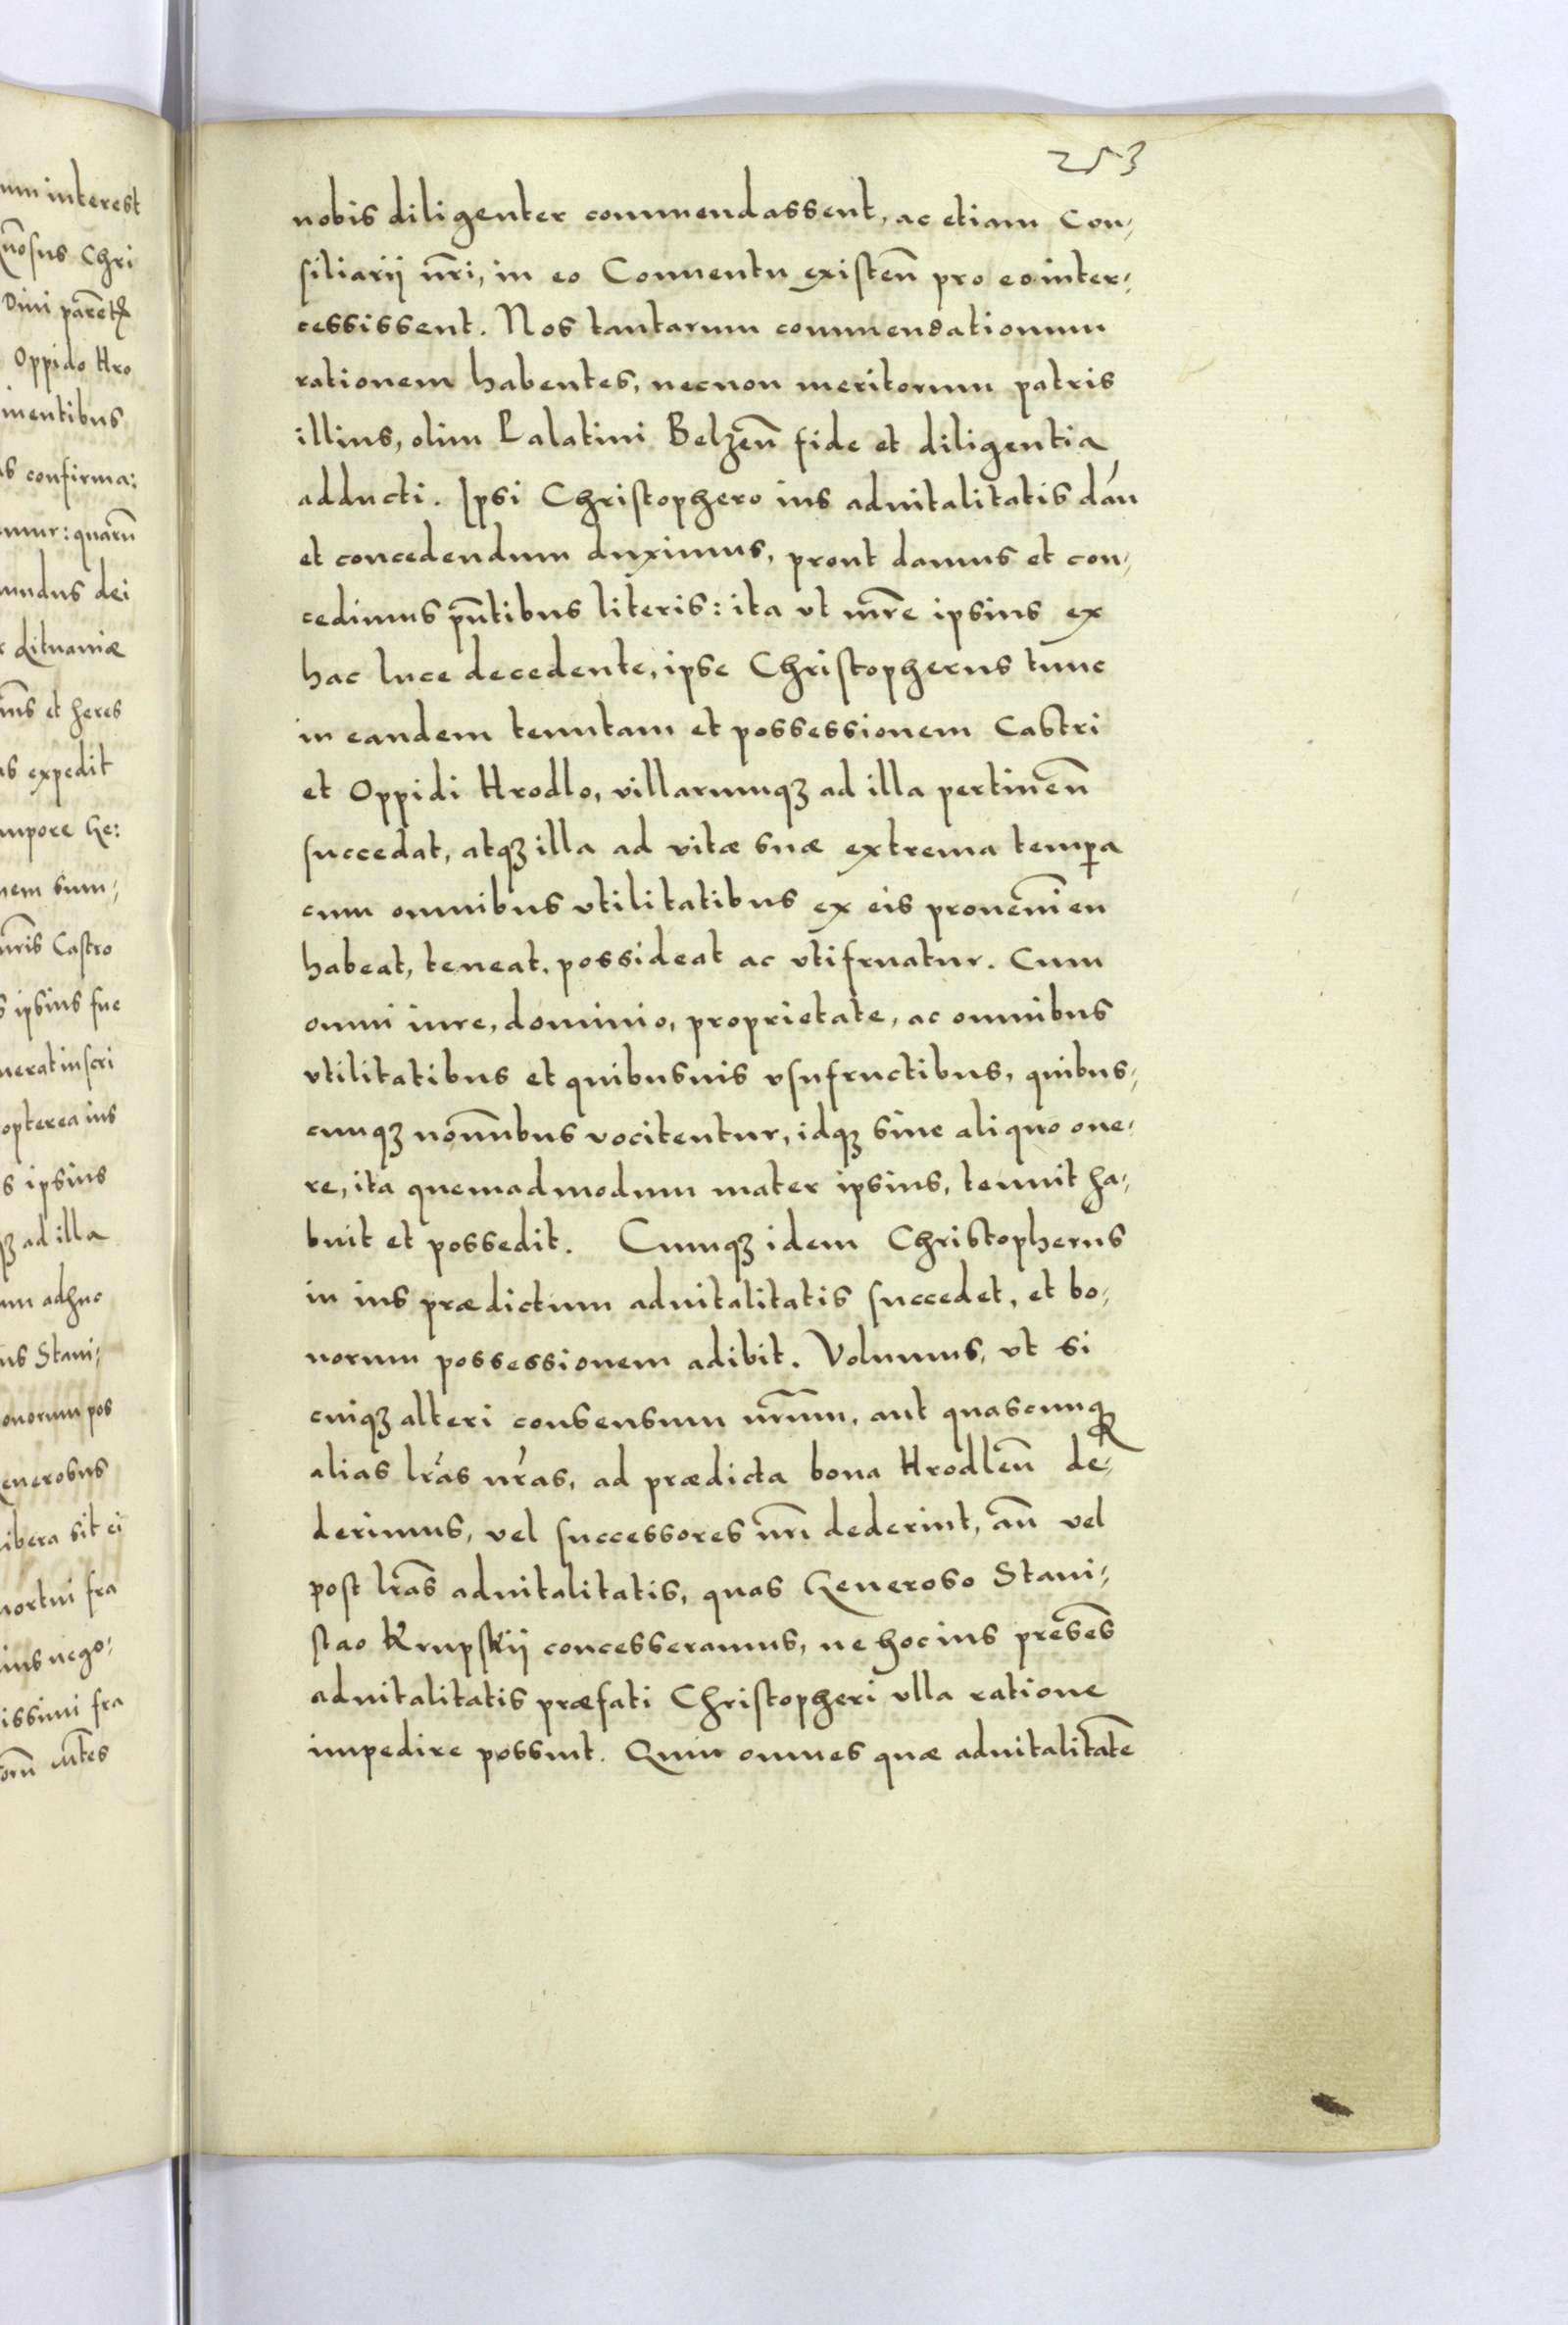 253
nobis diligenter commendassent, ac etiam Con,
siliarij nr̃i, in eo Conuentu existeñ pro eo inter,
cessissent. Nos tantarum commendationum
rationem habentes, necnon meritorum patris
illius, olim Palatini Belzeñ fide et diligentia
adducti. Ipsi Christophero ius aduitalitatis dañ
et concedendum duximus, prout damus et con,
cedimus pñtibus literis: ita vt mr̃e ipsius ex
hac luce decedente, ipse Christopherus tunc
in eandem tenutam et possessionem Castri
et Oppidi Hrodlo, villarumqꝫ ad illa pertineñ
succedat, atqꝫ illa ad vitæ suæ extrema temp̲a
cum omnibus vtilitatibus ex eis proueñien
habeat, teneat, possideat ac vtifruatur. Cum
omni iure, dominio, proprietate, ac omnibus
vtilitatibus et quibusuis vsufructibus, quibus,
cunqꝫ noĩnibus vocitentur, idqꝫ sine aliquo one,
re, ita quemadmodum mater ipsius, tenuit ha,
buit et possedit. Cumqꝫ idem Christopherus
in ius prædictum aduitalitatis succedet, et bo,
norum possessionem adibit. Volumus, vt si
cuiqꝫ alteri consensum nr̃um, aut quascunqꝫ
alias lr̃as nr̃as, ad prædicta bona Hrodleñ de,
derimus, vel successores nr̃i dederint, añ vel
post lr̃as aduitalitatis, quas Generoso Stani,
slao Krupskij concesseramus, ne hoc ius presẽs
aduitalitatis præfati Christopheri vlla ratione
impedire possint. Quin omnes quæ aduitalitatẽ
um interest
ño sus Chri
Diui parent
Oppido Hro
inentibus
as confirma:
mur: quarũ
mundus dei
Lituaniæ
et heres
as expedit
mpore Ge:
nem sum,
nr̃is Castro
s ipsius sue
uerat inscri
opterea ius
s ipsius
qꝫ ad illa
um adhuc
us Stani,
onorum pos
enerosus
libera sit ei
mortui fra
ius nego,
issimi fra